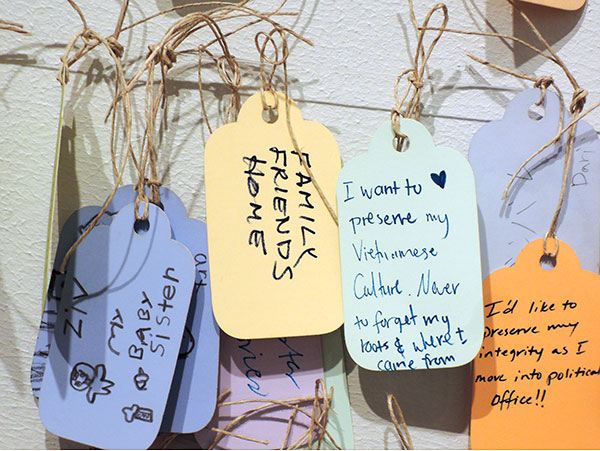 my BABY
Sister
FAMILY
FRIENDS
HOME
I want to
preserve my
Vietnamese
Culture. Never
to forget my
roots & where I
came from
I'd like to
preserve my
integrity as I
move into political
office!!